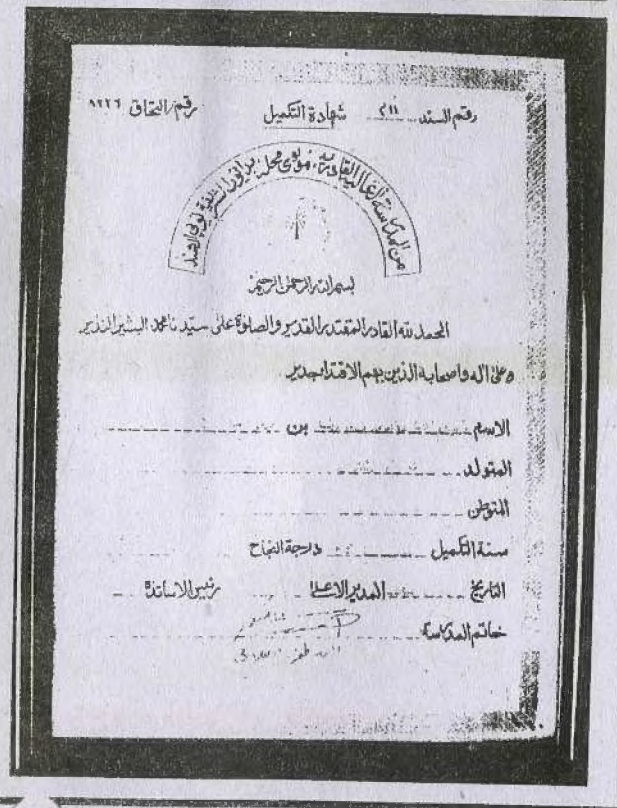 رقم السند ٢١١ شهادة التكميل رقم التحاق ٩٢٢٦
من المدرسة العالية القادرية، مولوى محله بدايون الشريفة يوبى الهند
بسم الله الرحمن الرحيم
الحمد لله القادر المقتدر القدير والصلوة على سيدنا محمد البشير النذير
وعلى اله واصحابه الذين بهم الاقتداء جدير
الاسم بن
المتولد
المتوطن
سنة التكميل درجة النجاح
التاريخ المدير الاعلى رئيس الاساتذة
خاتم المدرسة